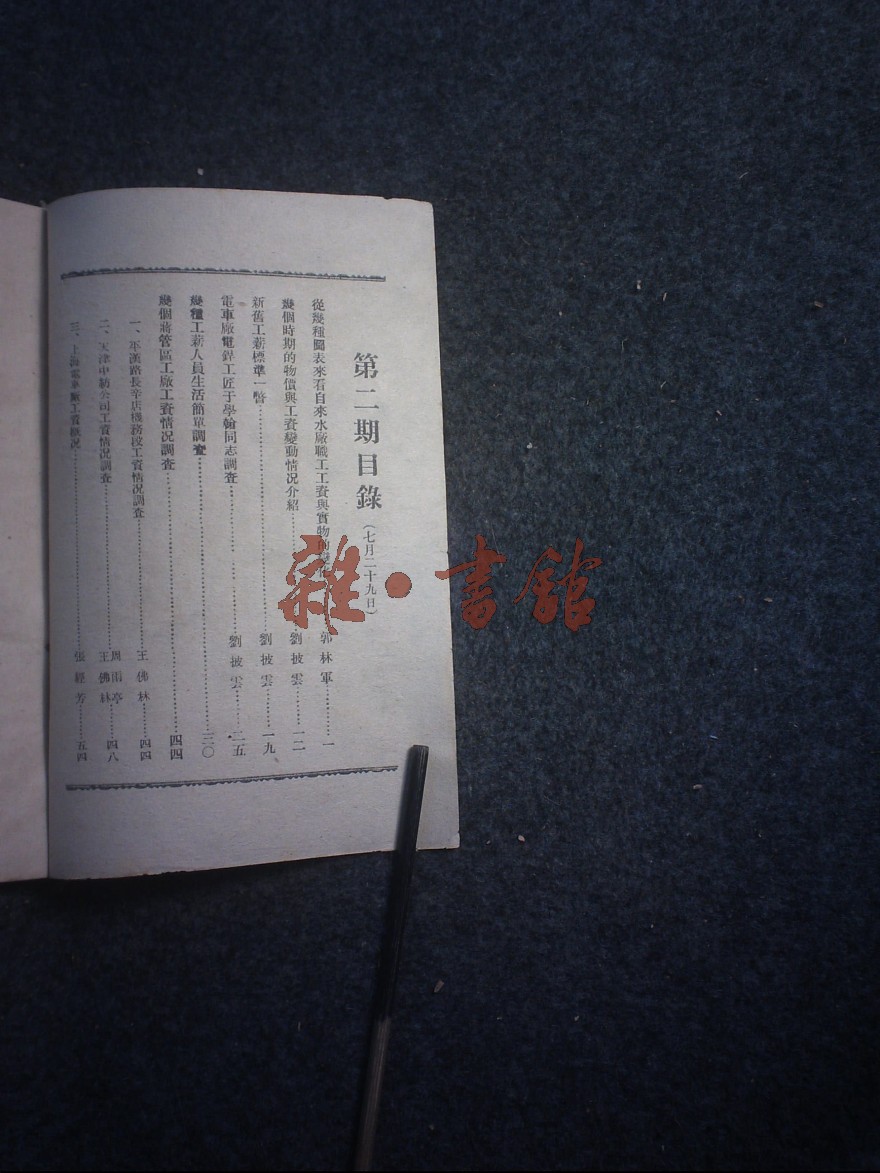 第二期目錄(七月二十九日)
從幾種圖表來看自來水廠職工工資與實物的 郭林軍…………一
幾個時期的物價與工資變動情况介紹…………劉披雲…………一二
新舊工薪標準一瞥…………劉披雲…………一九
電車廠電銲工匠于學翰同志調查…………劉披雲…………二五
幾種工薪人員生活簡單調查…………三〇
幾個蔣管區工廠工資情况調查…………四四
一、平漢路長辛店機務段工資情况調查…………王佛林…………四四
二、天津中紡公司工資情况調查…………周雨亭 王佛林…………四八
三、上海電車廠工資概况…………張經芳…………五四
雜·書館